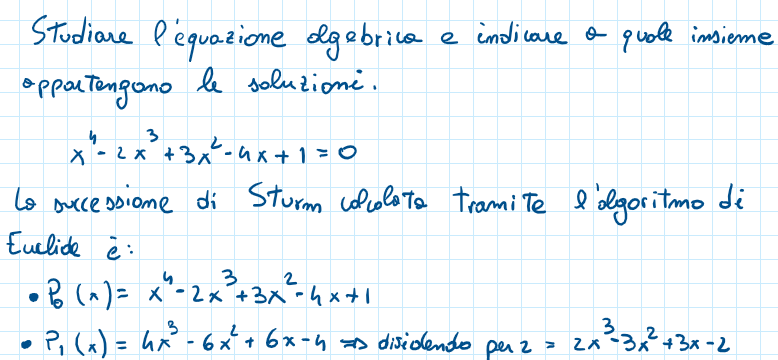 Studiare l'equazione algebrica e indicare a quale insieme
appartengono le soluzioni.
x⁴ - 2x³ + 3x² - 4x + 1 = 0
La successione di Sturm calcolata tramite l'algoritmo di
Euclide è:
• P₀(x) = x⁴ - 2x³ + 3x² - 4x + 1
• P₁(x) = 4x³ - 6x² + 6x - 4 => dividendo per 2 = 2x³ - 3x² + 3x - 2